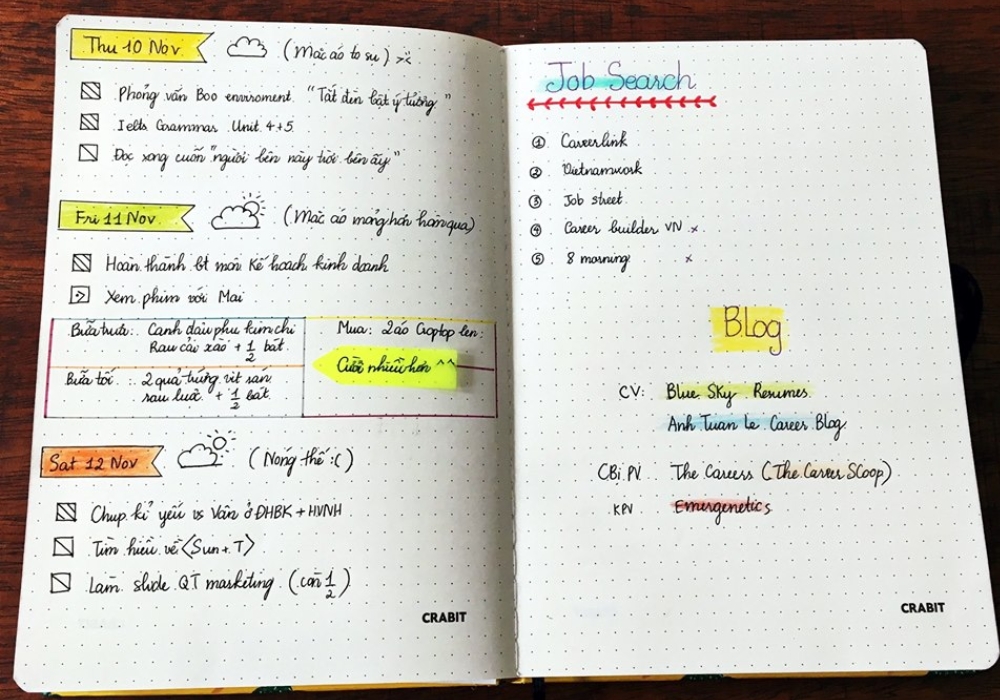 Thu 10 Nov (Mặc áo to sụ) ><
Phỏng vấn Boo enviroment. "Tắt đèn bật ý tưởng"
Ielts Grammar Unit 4+5.
Đọc xong cuốn "người bên này trời bên ấy"
Fri 11 Nov (Mặc áo mỏng hơn hôm qua)
Hoàn thành bt môn Kế hoạch kinh doanh
Xem phim với Mai
Bữa trưa: Canh đậu phụ kim chi
Rau cải xào + 1/2 bát.
Bữa tối: 2 quả trứng vịt
sau luộc + 1/2 bát
Mua: 2 áo Croptop len:
Cười nhiều hơn ^^
Sat 12 Nov (Nóng thế :()
Chụp kỉ yếu vs Vân ở ĐHBK + HVNH
Tìm hiểu về <Sun.T>
Làm slide QT marketing. (còn 1/2)
CRABIT
Job Search
① Careerlink
② Vietnamwork
③ Job street.
④ Career builder VN x
⑤ 8 morning x
Blog
CV: Blue Sky Resumes
Anh Tuan Le Career Blog
CBị PV The Careers (The Career SCoop)
KPV Emergenetics
CRABIT